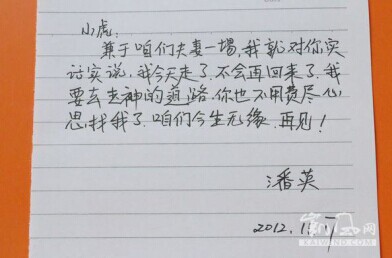 小虎:
兼于咱们夫妻一場,我就对你实
话实说,我今天走了.不会再回来了.我
要去走神的道路.你也不用费尽心
思,找我了.咱们今生无缘.再见!
潘英
2012.11.
凯风网
KAIWIND.COM